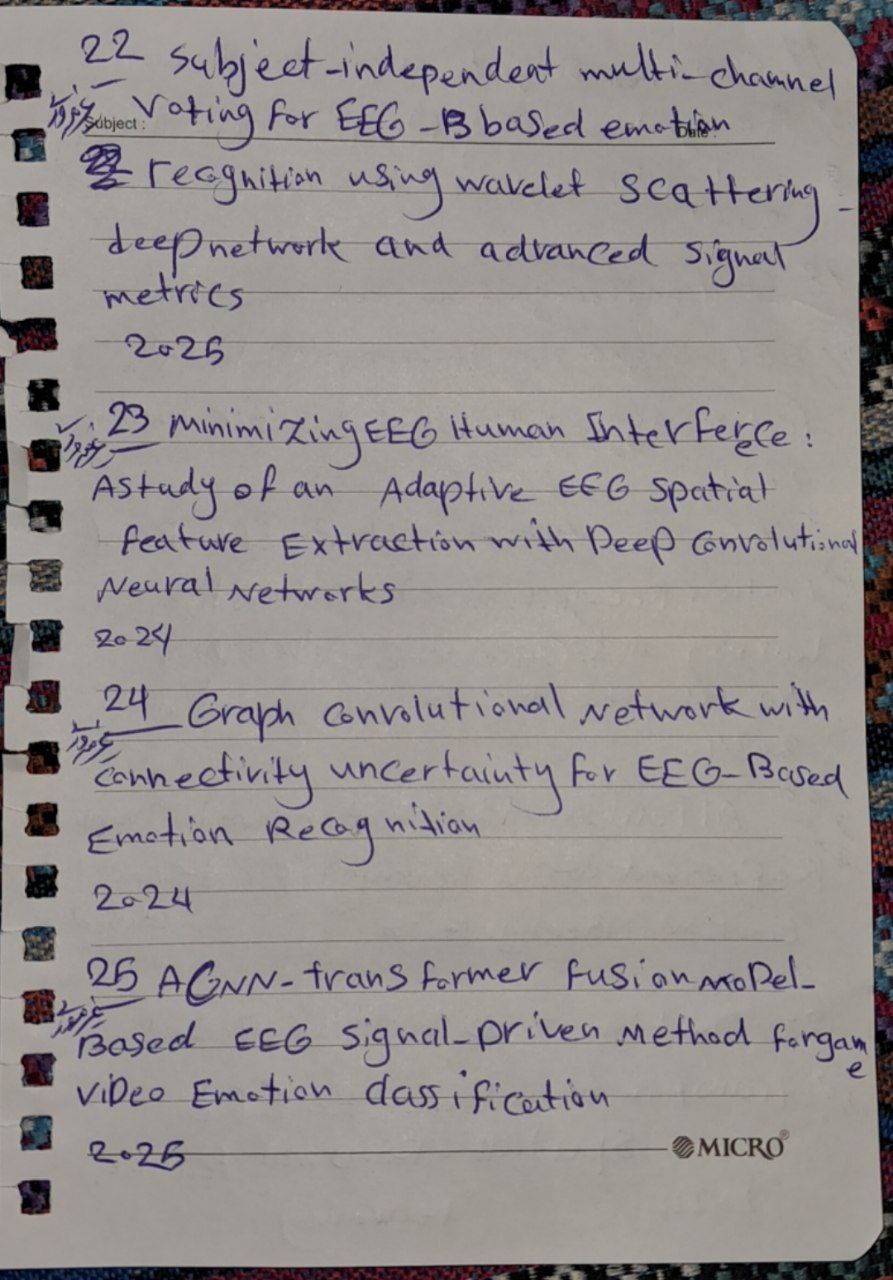 22 subject-independent multi-channel
Subject :
Voting for EEG-B based emotion
recagnition using wavelet scattering -
deep network and advanced signal
metrics
2025
23 Minimizing EEG Human Interferece :
e
A study of an Adaptive EEG Spatial
feature Extraction with Deep Convolutional
Neural Networks
2024
24 Graph Convolutional Network with
Connectivity uncertainty for EEG-Based
Emotion Recagnition
2024
25 A GNN-transformer fusion moDel-
Based EEG signal-Driven Method for gam
e
viDeo Emotion classification
2025
MICRO®